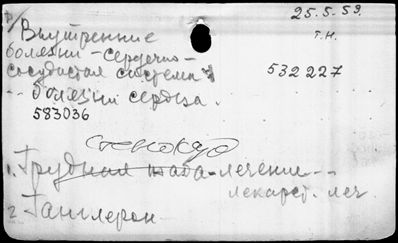 25.5.59.
Р/Внутренние
т.н.
болезни - сердечно -
сосудистая система
532227
-- болезни сердца.
583036
стенокар
1. Грудная жаба - лечение --
лекарст. леч.
2. Ганглерон